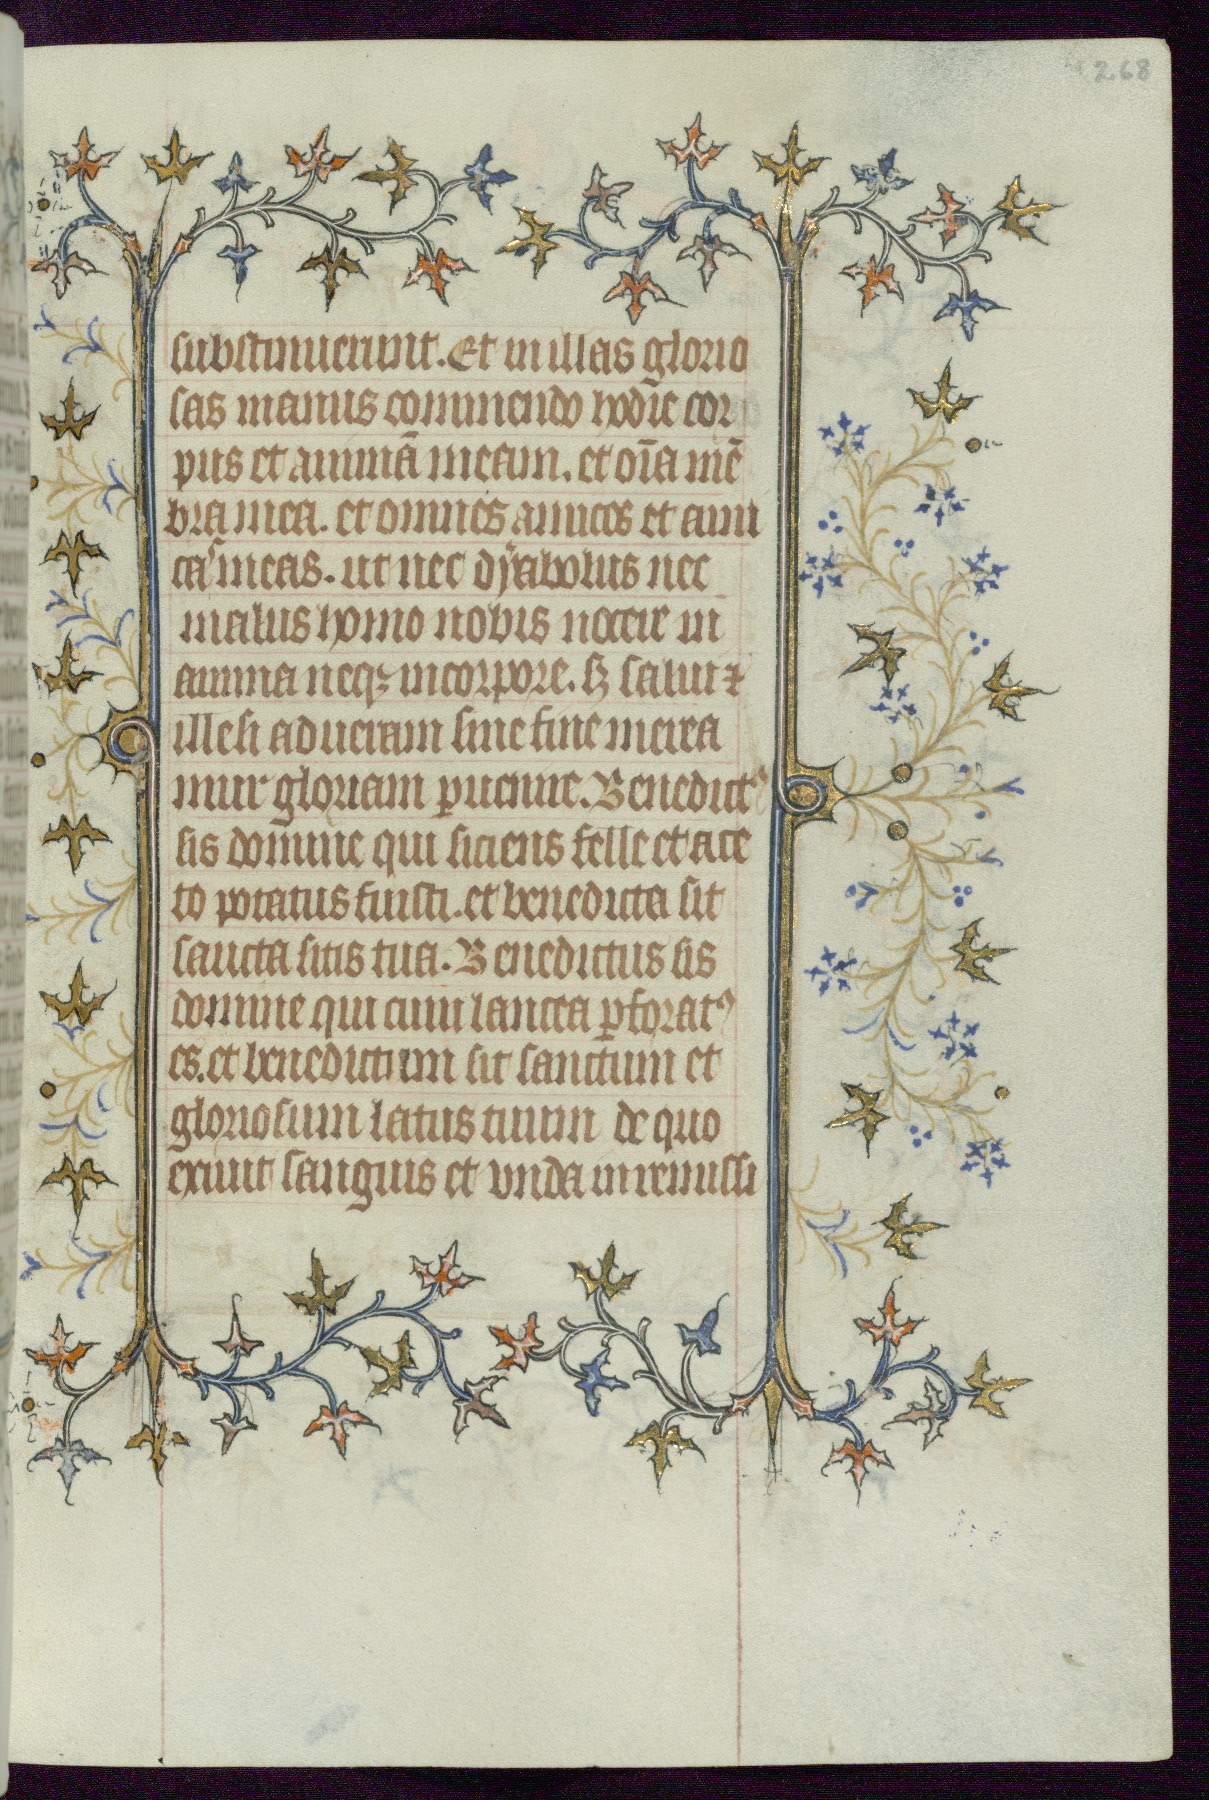 268
substinuerunt. Et in illas glorio
sas manus commendo hodie cor
pus et animā meam. et oīa mē
bra mea. et omnes amicos et ami
cas meas. ut nec dyabolus nec
malus homo nobis nocere in
anima neqꝫ in corpore. sꝫ salui ⁊
illesi ad ueram sine fine merea
mur gloriam ꝑuenire. Benedictꝰ
sis domine qui siciens felle et ace
to potatus fuisti. et benedicta sit
sancta sitis tua. Benedictus sis
domine qui cum lancea ꝑforatꝰ
es. et benedictum sit sanctum et
gloriosum latus tuum de quo
exiuit sanguis et vnda in remissi